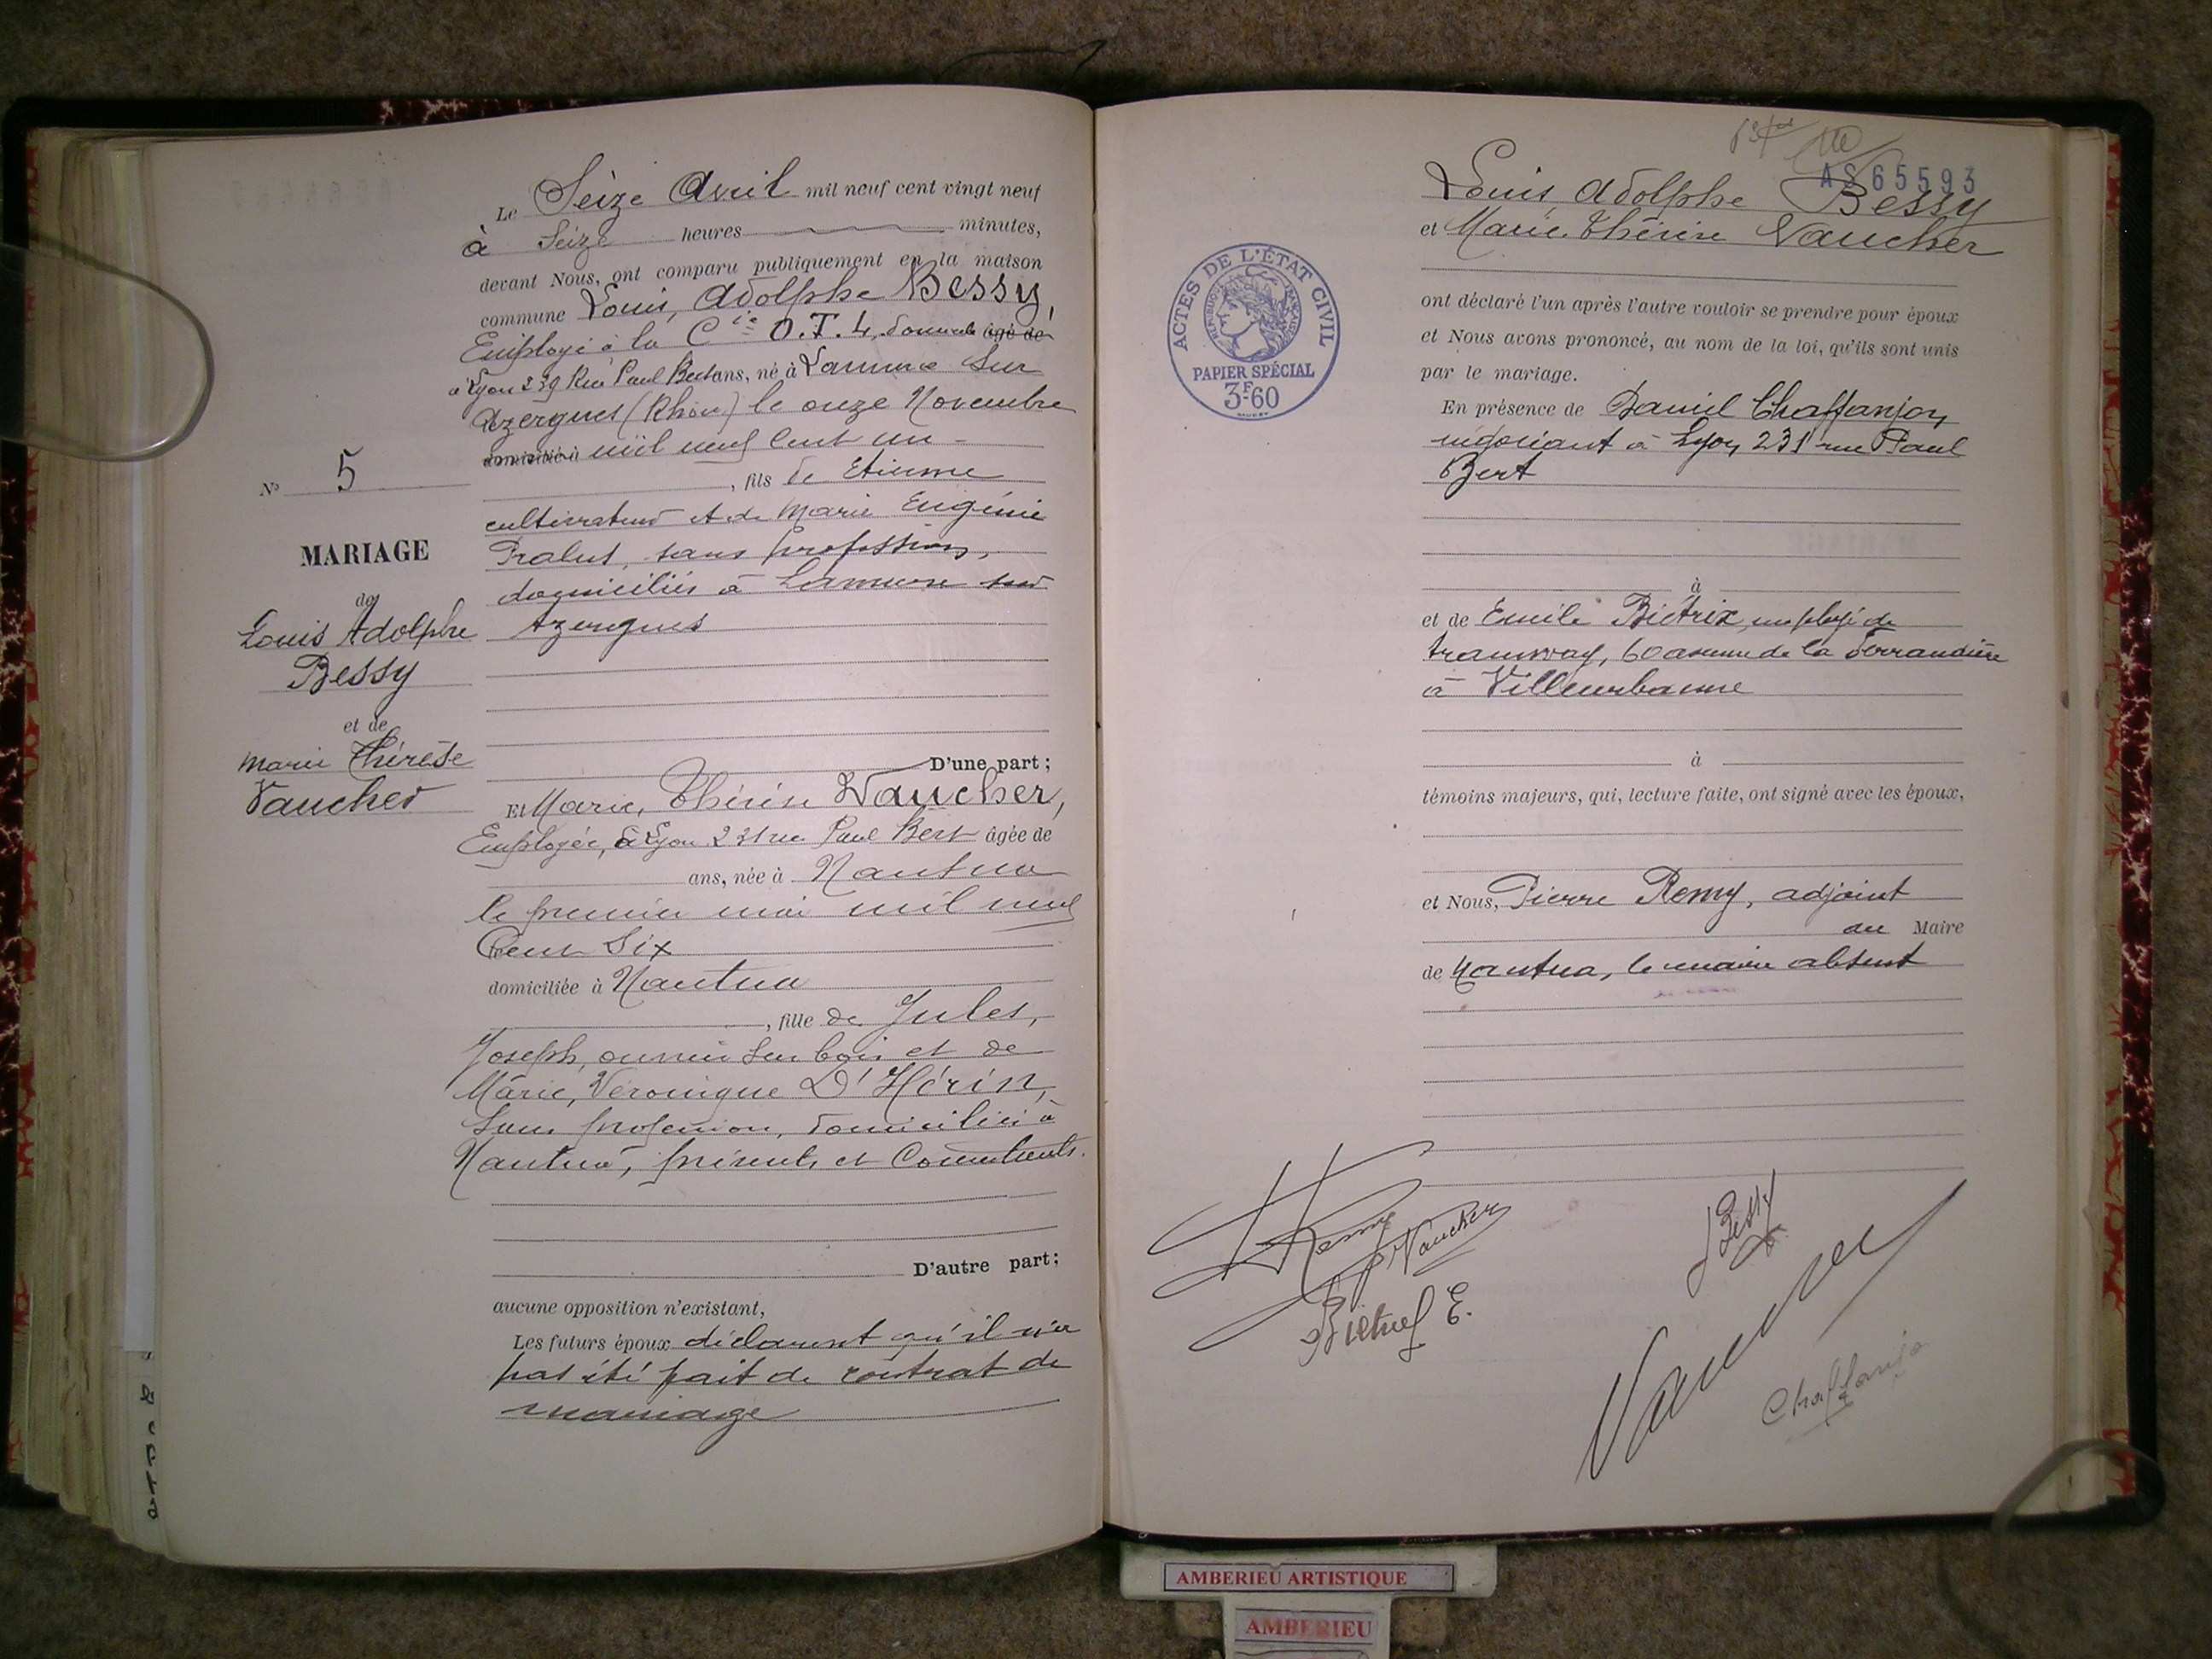 Le Seize Avril mil neuf cent vingt neuf
à Seize heures minutes,
devant Nous, ont comparu publiquement en la maison
commune Louis, Adolphe Bessy,
Employé à la Cie O.T.L. domicilié âgé de
à Lyon 239 Rue Paul Bert ans, né à Lamure sur
Azergues (Rhône) le onze Novembre
domicilié à mil neuf cent un
, fils de Etienne
cultivateur et de Marie Eugénie
Pralus, sans profession,
domiciliés à Lamure sur
Azergues
D'une part;
N° 5
MARIAGE
de
Louis Adolphe
Bessy
et de
Marie Thérèse
Vaucher
Et Marie, Thérèse Vaucher,
Employée, à Lyon 231 rue Paul Bert âgée de
ans, née à Nantua
le premier mai mil neuf
Cent Six
domiciliée à Nantua
, fille de Jules,
Joseph, ouvrier sur bois et de
Marie, Véronique D'Hérin,
Sans profession, domiciliés à
Nantua, présents et Consentants.
D'autre part;
aucune opposition n'existant,
Les futurs époux déclarent qu'il n'a
pas été fait de contrat de
mariage
AS65593
Louis Adolphe Bessy
et Marie Thérèse Vaucher
ACTES DE L'ÉTAT CIVIL
RÉPUBLIQUE FRANÇAISE
PAPIER SPÉCIAL
3F.60
ont déclaré l'un après l'autre vouloir se prendre pour époux
et Nous avons prononcé, au nom de la loi, qu'ils sont unis
par le mariage.
En présence de Daniel Chaffanjon,
négociant à Lyon, 231 rue Paul
Bert
à
et de Emile Biétrix, employé de
tramway, 60 avenue de la Ferrandière
à Villeurbanne
à
témoins majeurs, qui, lecture faite, ont signé avec les époux,
et Nous, Pierre Remy, adjoint
au Maire
de Nantua, le maire absent
Remy
Vaucher
Bessy
E.
Vaucher
Chaffanjo
AMBERIEU ARTISTIQUE
AMBERIEU